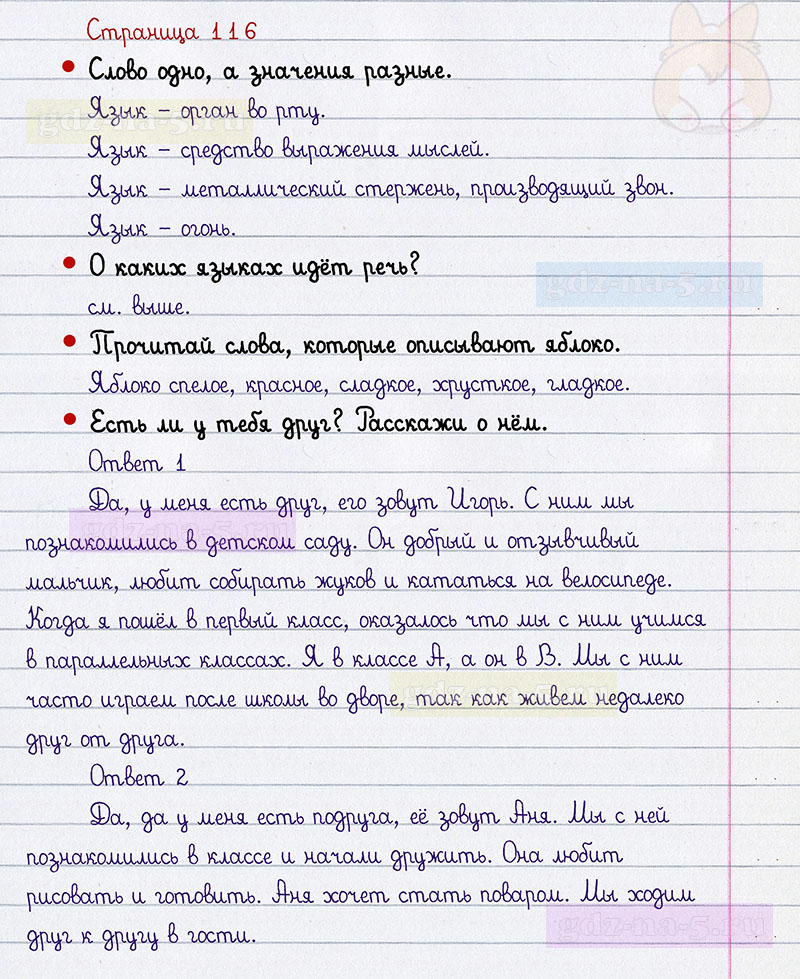 Страница 116
• Слово одно, а значения разные.
Язык – орган во рту.
gdz-na-5.ru
Язык – средство выражения мыслей.
Язык – металлический стержень, производящий звон.
Язык – огонь.
• О каких языках идёт речь?
gdz-na-5.ru
см. выше.
• Прочитай слова, которые описывают яблоко.
Яблоко спелое, красное, сладкое, хрусткое, гладкое.
• Есть ли у тебя друг? Расскажи о нём.
Ответ 1
Да, у меня есть друг, его зовут Игорь. С ним мы
gdz-na-5.ru
познакомились в детском саду. Он добрый и отзывчивый
мальчик, любит собирать жуков и кататься на велосипеде.
Когда я пошёл в первый класс, оказалось что мы с ним учимся
в параллельных классах. Я в классе А, а он в В. Мы с ним
часто играем после школы во дворе, так как живем недалеко
gdz-na-5.ru
друг от друга.
Ответ 2
Да, да у меня есть подруга, её зовут Аня. Мы с ней
познакомились в классе и начали дружить. Она любит
рисовать и готовить. Аня хочет стать поваром. Мы ходим
друг к другу в гости.
gdz-na-5.ru